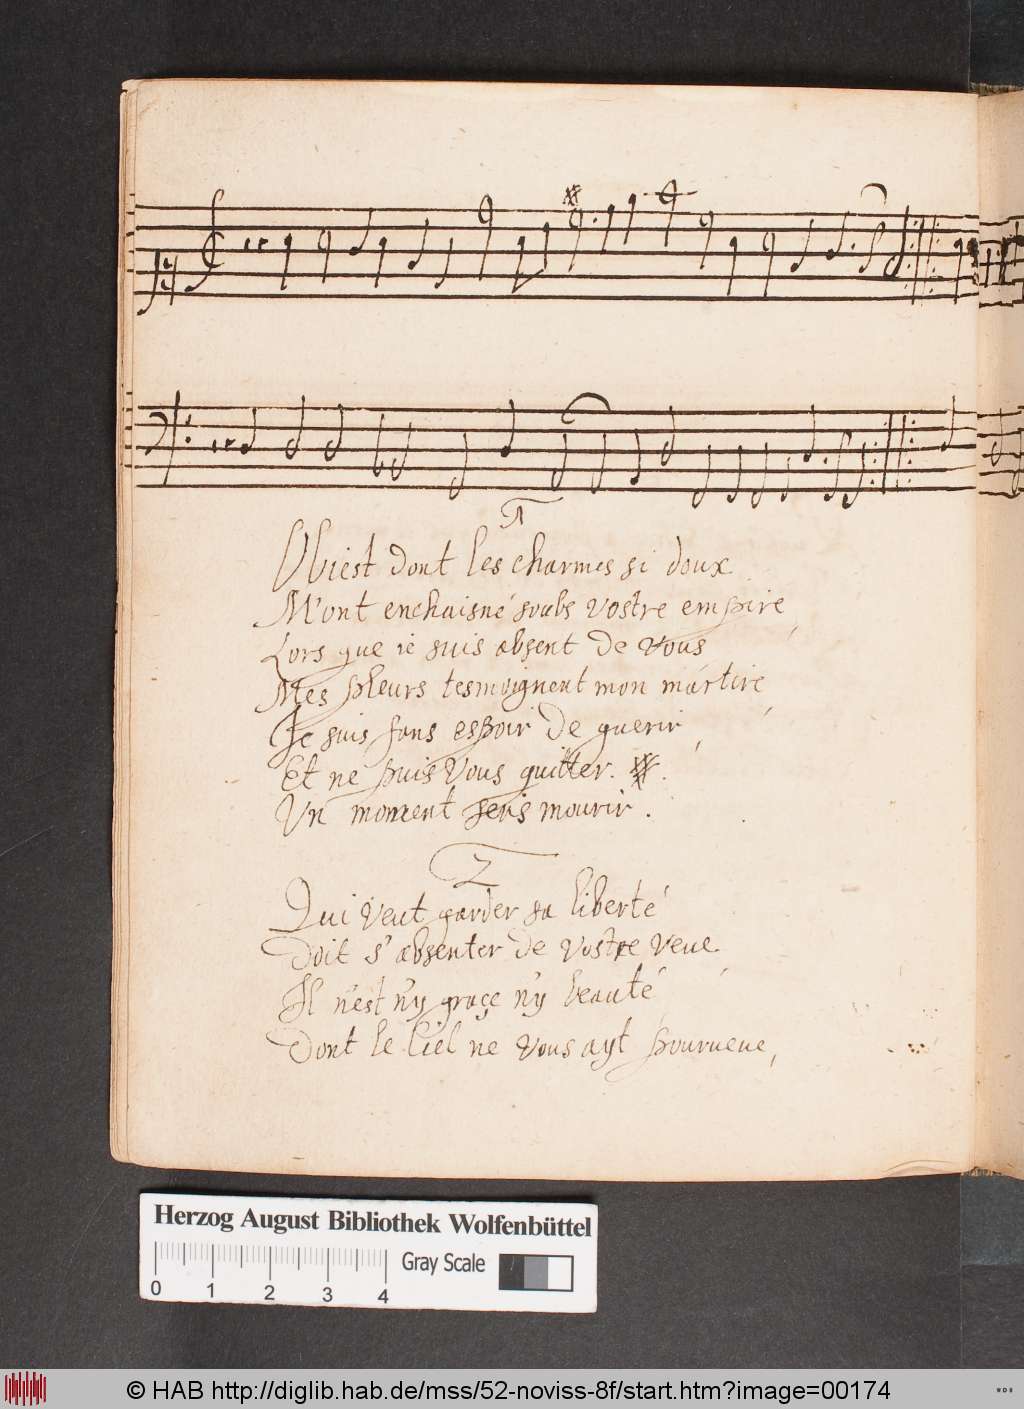 1
Obiect dont les charmes si doux
M'ont enchaisné soubs vostre empire,
Lors que ie suis absent de vous
Mes pleurs tesmoignent mon martire,
Je suis sans espoir de guerir,
Et ne puis vous quitter. ⁜.
Un moment sens mourir.
2
Qui veut garder sa liberté
Doit s'absenter de vostre veue
Il n'est n'y grace n'y beauté,
Dont le Ciel ne vous ayt pourueue,
Herzog August Bibliothek Wolfenbüttel
Gray Scale
0 1 2 3 4
© HAB http://diglib.hab.de/mss/52-noviss-8f/start.htm?image=00174